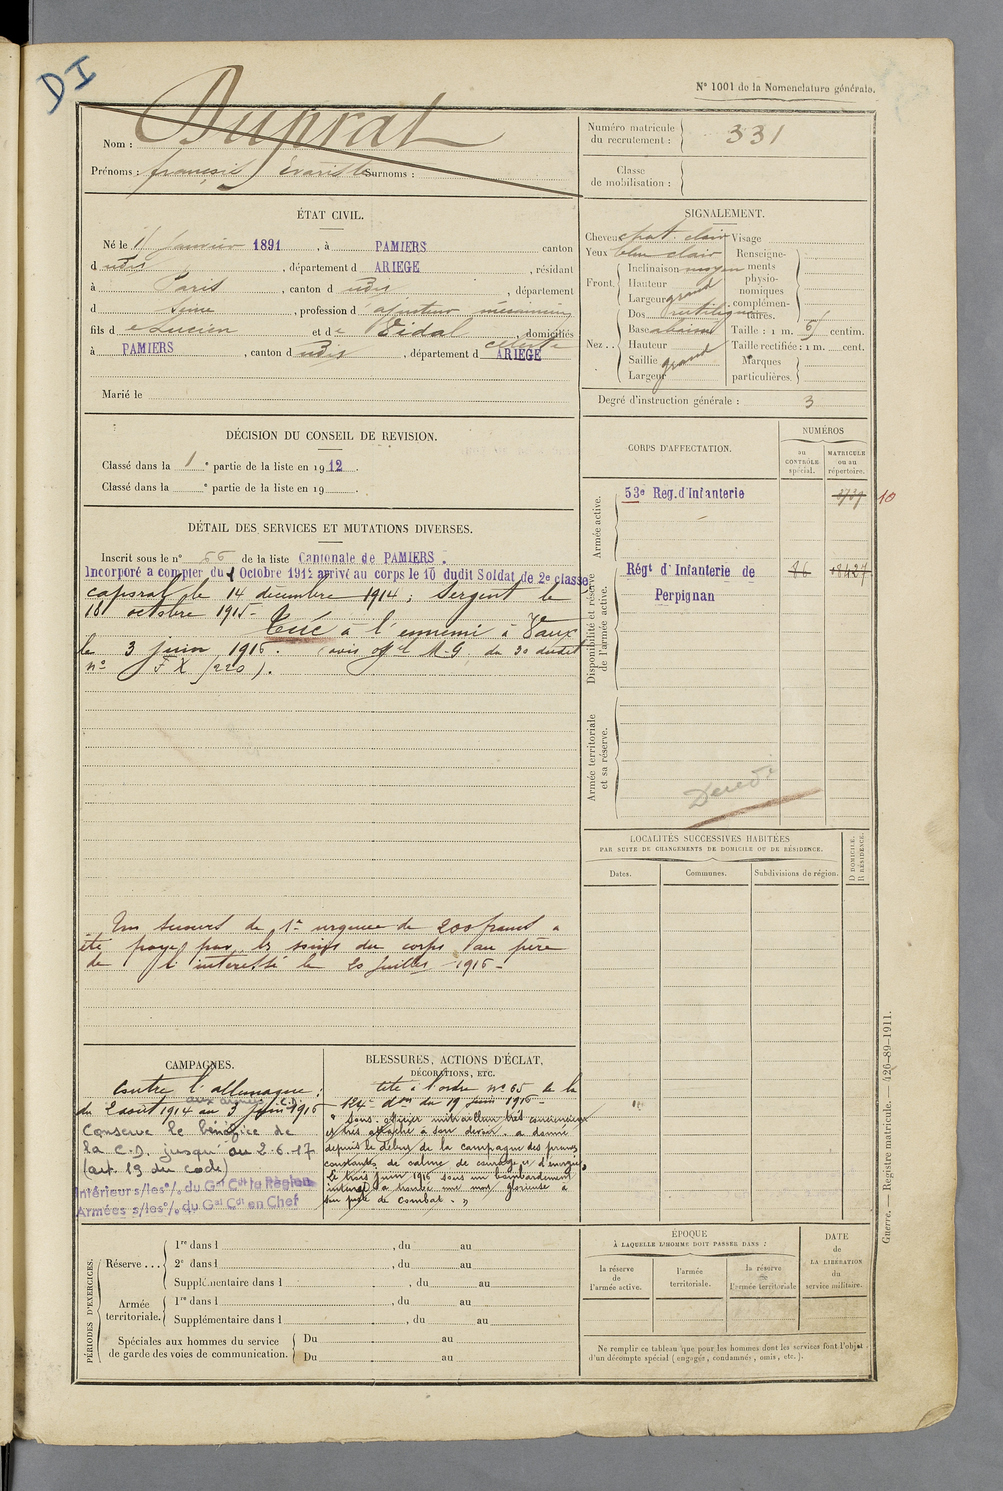 DI
N° 1001 de la Nomenclature générale.
Nom : Duprat
Prénoms : françois Evariste Surnoms :
Numéro matricule du recrutement : 331
Classe de mobilisation :
ÉTAT CIVIL.
Né le Janvier 1891, à PAMIERS canton
d udis, département d ARIEGE, résidant
à Paris, canton d udis, département
d Seine, profession d'ajusteur mécanicien
fils d e Lucien et de Vidal Celeste domiciliés
à PAMIERS, canton d udis, département d ARIEGE
Marié le
SIGNALEMENT.
Cheveux chat. clair Visage
Yeux bleu clair
Front. Inclinaison moyen
Hauteur
Largeur grand
Nez .. Dos rectiligne
Base abaissé
Hauteur
Saillie grand
Largeur
Renseignements physionomiques complémentaires.
Taille : 1 m. 61 centim.
Taille rectifiée : 1 m. cent.
Marques particulières.
Degré d'instruction générale : 3
DÉCISION DU CONSEIL DE REVISION.
Classé dans la 1e partie de la liste en 1912.
Classé dans la e partie de la liste en 19 .
CORPS D'AFFECTATION.
NUMÉROS
au CONTRÔLE spécial.
MATRICULE ou au répertoire.
Armée active.
53e Reg. d'Infanterie
10
Disponibilité et réserve de l'armée active.
Régt d'Infanterie de
Perpignan
Armée territoriale et sa réserve.
DÉTAIL DES SERVICES ET MUTATIONS DIVERSES.
Inscrit sous le n° 66 de la liste Cantonale de PAMIERS.
Incorporé à compter du 1 Octobre 1912 arrivé au corps le 10 dudit Soldat de 2e classe
caporal le 14 décembre 1914 ; Sergent le
18 octobre 1915 - Tué à l'ennemi à Vaux
le 3 juin 1916. (avis offel M.G. du 30 dudit
n° FX (220).
Un secours de 1re urgence de 200 francs a
été payé par les soins du corps au père
de l'interessé le 20 juillet 1916 -
LOCALITÉS SUCCESSIVES HABITÉES
PAR SUITE DE CHANGEMENTS DE DOMICILE OU DE RÉSIDENCE.
Dates.
Communes.
Subdivisions de région.
D DOMICILE. R RÉSIDENCE.
CAMPAGNES.
Contre l'allemagne :
aux armées C.D.
du 2 aout 1914 au 3 juin 1916
Conserve le bénéfice de
la C.D. jusqu'au 2-6-17
(art. 19 du code)
Intérieur s/les o/o du Gal Cdt la Région
Armées s/les o/o du Gal Cdt en Chef
BLESSURES, ACTIONS D'ÉCLAT,
DÉCORATIONS, ETC.
Cité à l'ordre n° 65 de la
124e don du 19 juin 1916 -
" Sous-officier mitrailleur très consciencieux
et très attaché à son devoir. a donné
depuis le début de la campagne des preuves
constantes de calme de courage et d'énergie.
Le trois juin 1916 sous un bombardement
intense a trouvé une mort glorieuse à
son poste de combat. "
PÉRIODES D'EXERCICES.
Réserve ...
1re dans l , du au
2e dans l , du au
Supplémentaire dans l , du au
Armée territoriale.
1re dans l , du au
Supplémentaire dans l , du au
Spéciales aux hommes du service de garde des voies de communication.
Du au
Du au
ÉPOQUE
À LAQUELLE L'HOMME DOIT PASSER DANS :
la réserve de l'armée active.
l'armée territoriale.
la réserve de l'armée territoriale
DATE de LA LIBÉRATION du service militaire.
Ne remplir ce tableau que pour les hommes dont les services font l'objet
d'un décompte spécial (engagés, condamnés, omis, etc.).
Guerre. — Registre matricule. — 426-89-1911.